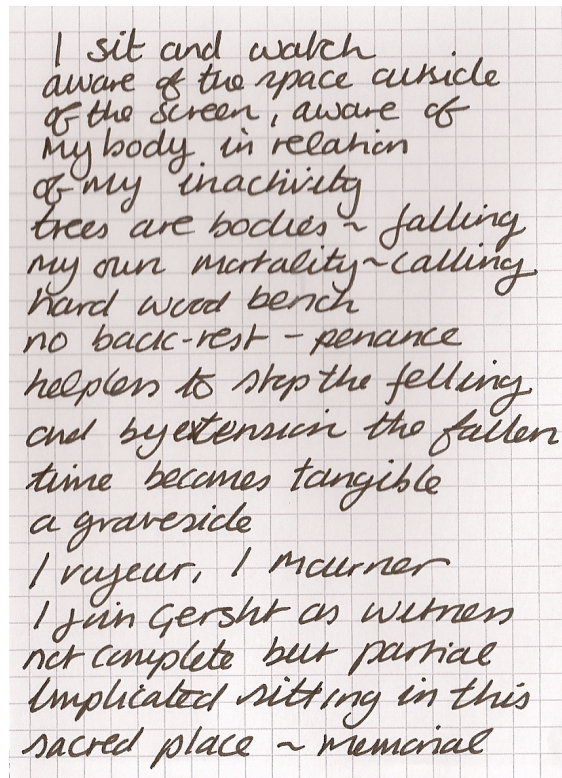 I sit and watch
aware of the space outside
of the screen, aware of
my body in relation
of my inactivity
trees are bodies ~ falling
my own mortality ~ calling
hard wood bench
no back-rest - penance
helpless to stop the felling
and by extension the fallen
time becomes tangible
a graveside
I voyeur, I mourner
I join Gersht as witness
not complete but partial
Implicated sitting in this
sacred place ~ memorial